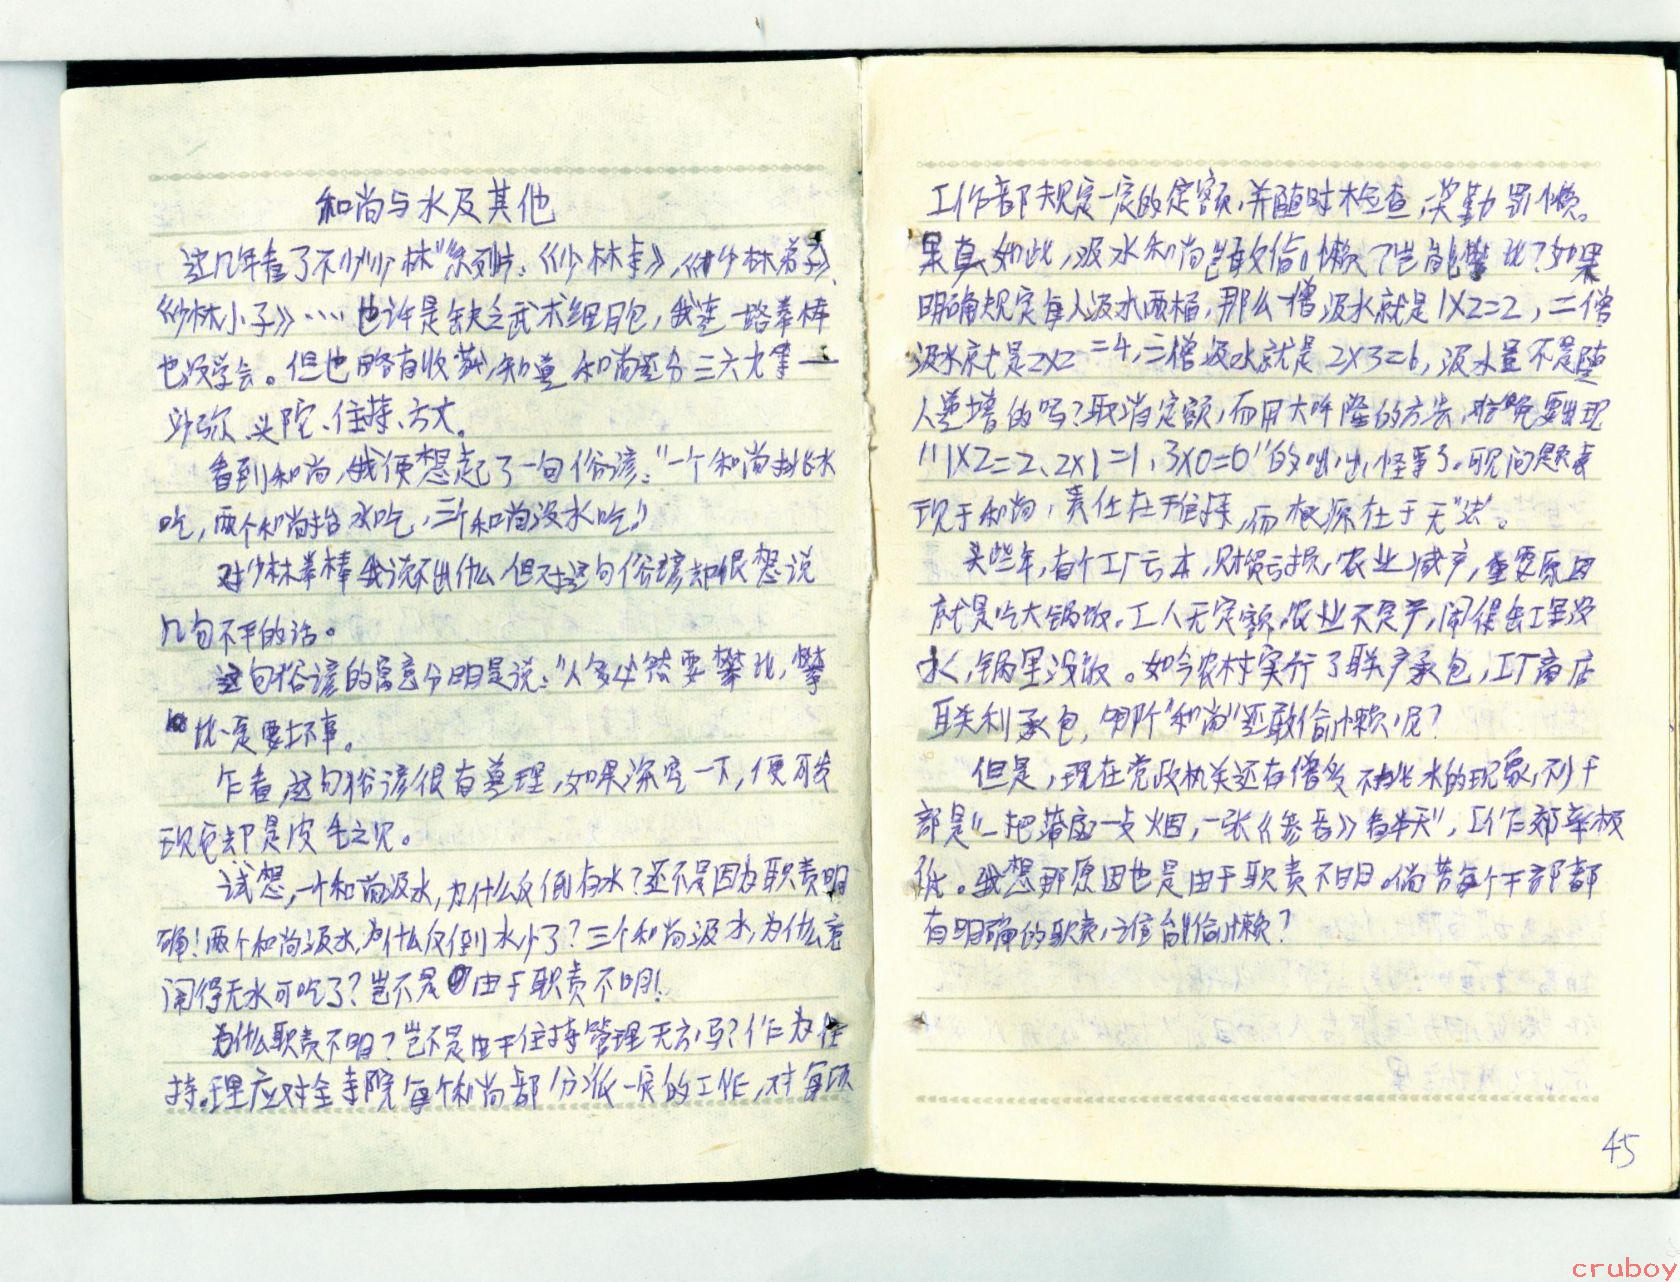 和尚与水及其他
这几年看了不少"少林"系列片:《少林寺》,《少林弟子》、
《少林小子》…… 也许是缺乏武术细胞,我连一路拳棒
也没学会。但也略有收获,知道和尚还分三六九等——
沙弥、头陀、住持、方丈。
看到和尚,我便想起了一句俗谚:"一个和尚挑水
吃,两个和尚抬水吃,三个和尚没水吃。"
对少林拳棒我说不出什么,但对这句俗谚却很想说
几句不平的话。
这句俗谚的寓意分明是说:"人多必然要攀比,攀
比一定要坏事。
乍看,这句俗谚很有道理,如果深究一下,便可发
现它却是皮毛之见。
试想,一个和尚汲水,为什么反倒有水?还不是因为职责明
确!两个和尚汲水,为什么反倒水少了?三个和尚汲水,为什么竟
闹得无水可吃了?岂不是由于职责不明!
为什么职责不明?岂不是由于住持管理无方吗?作为住
持。理应对全寺院每个和尚都分派一定的工作,对每项
工作都规定一定的定额,并随时检查,奖勤罚懒。
果真如此,汲水和尚岂敢偷懒?岂能攀比?如果
明确规定每人汲水两桶,那么一僧汲水就是1X2=2,二僧
汲水就是2X2=4,三僧汲水就是2X3=6,汲水量不是随
人递增的吗?取消定额,而用大呼隆的方法,难免要出现
"1X2=2、2X1=1,3X0=0"的咄咄怪事了。现问题表
现于和尚,责任在于住持,而根源在于无"法"。
头些年,有个工厂亏本,财贸亏损,农业减产,重要原因
就是吃大锅饭。工人无定额,农业不定产,闹得缸里没
水,锅里没饭。如今农村实行了联产承包,工厂商店
联利承包,那个"和尚"还敢偷懒呢?
但是,现在党政机关还有僧多不挑水的现象,不少干
部是"一把蒲扇一支烟,一张《参考》看半天",工作效率极
低。我想那原因也是由于职责不明。倘若每个干部都
有明确的职责,谁能偷懒?
45
cruboy